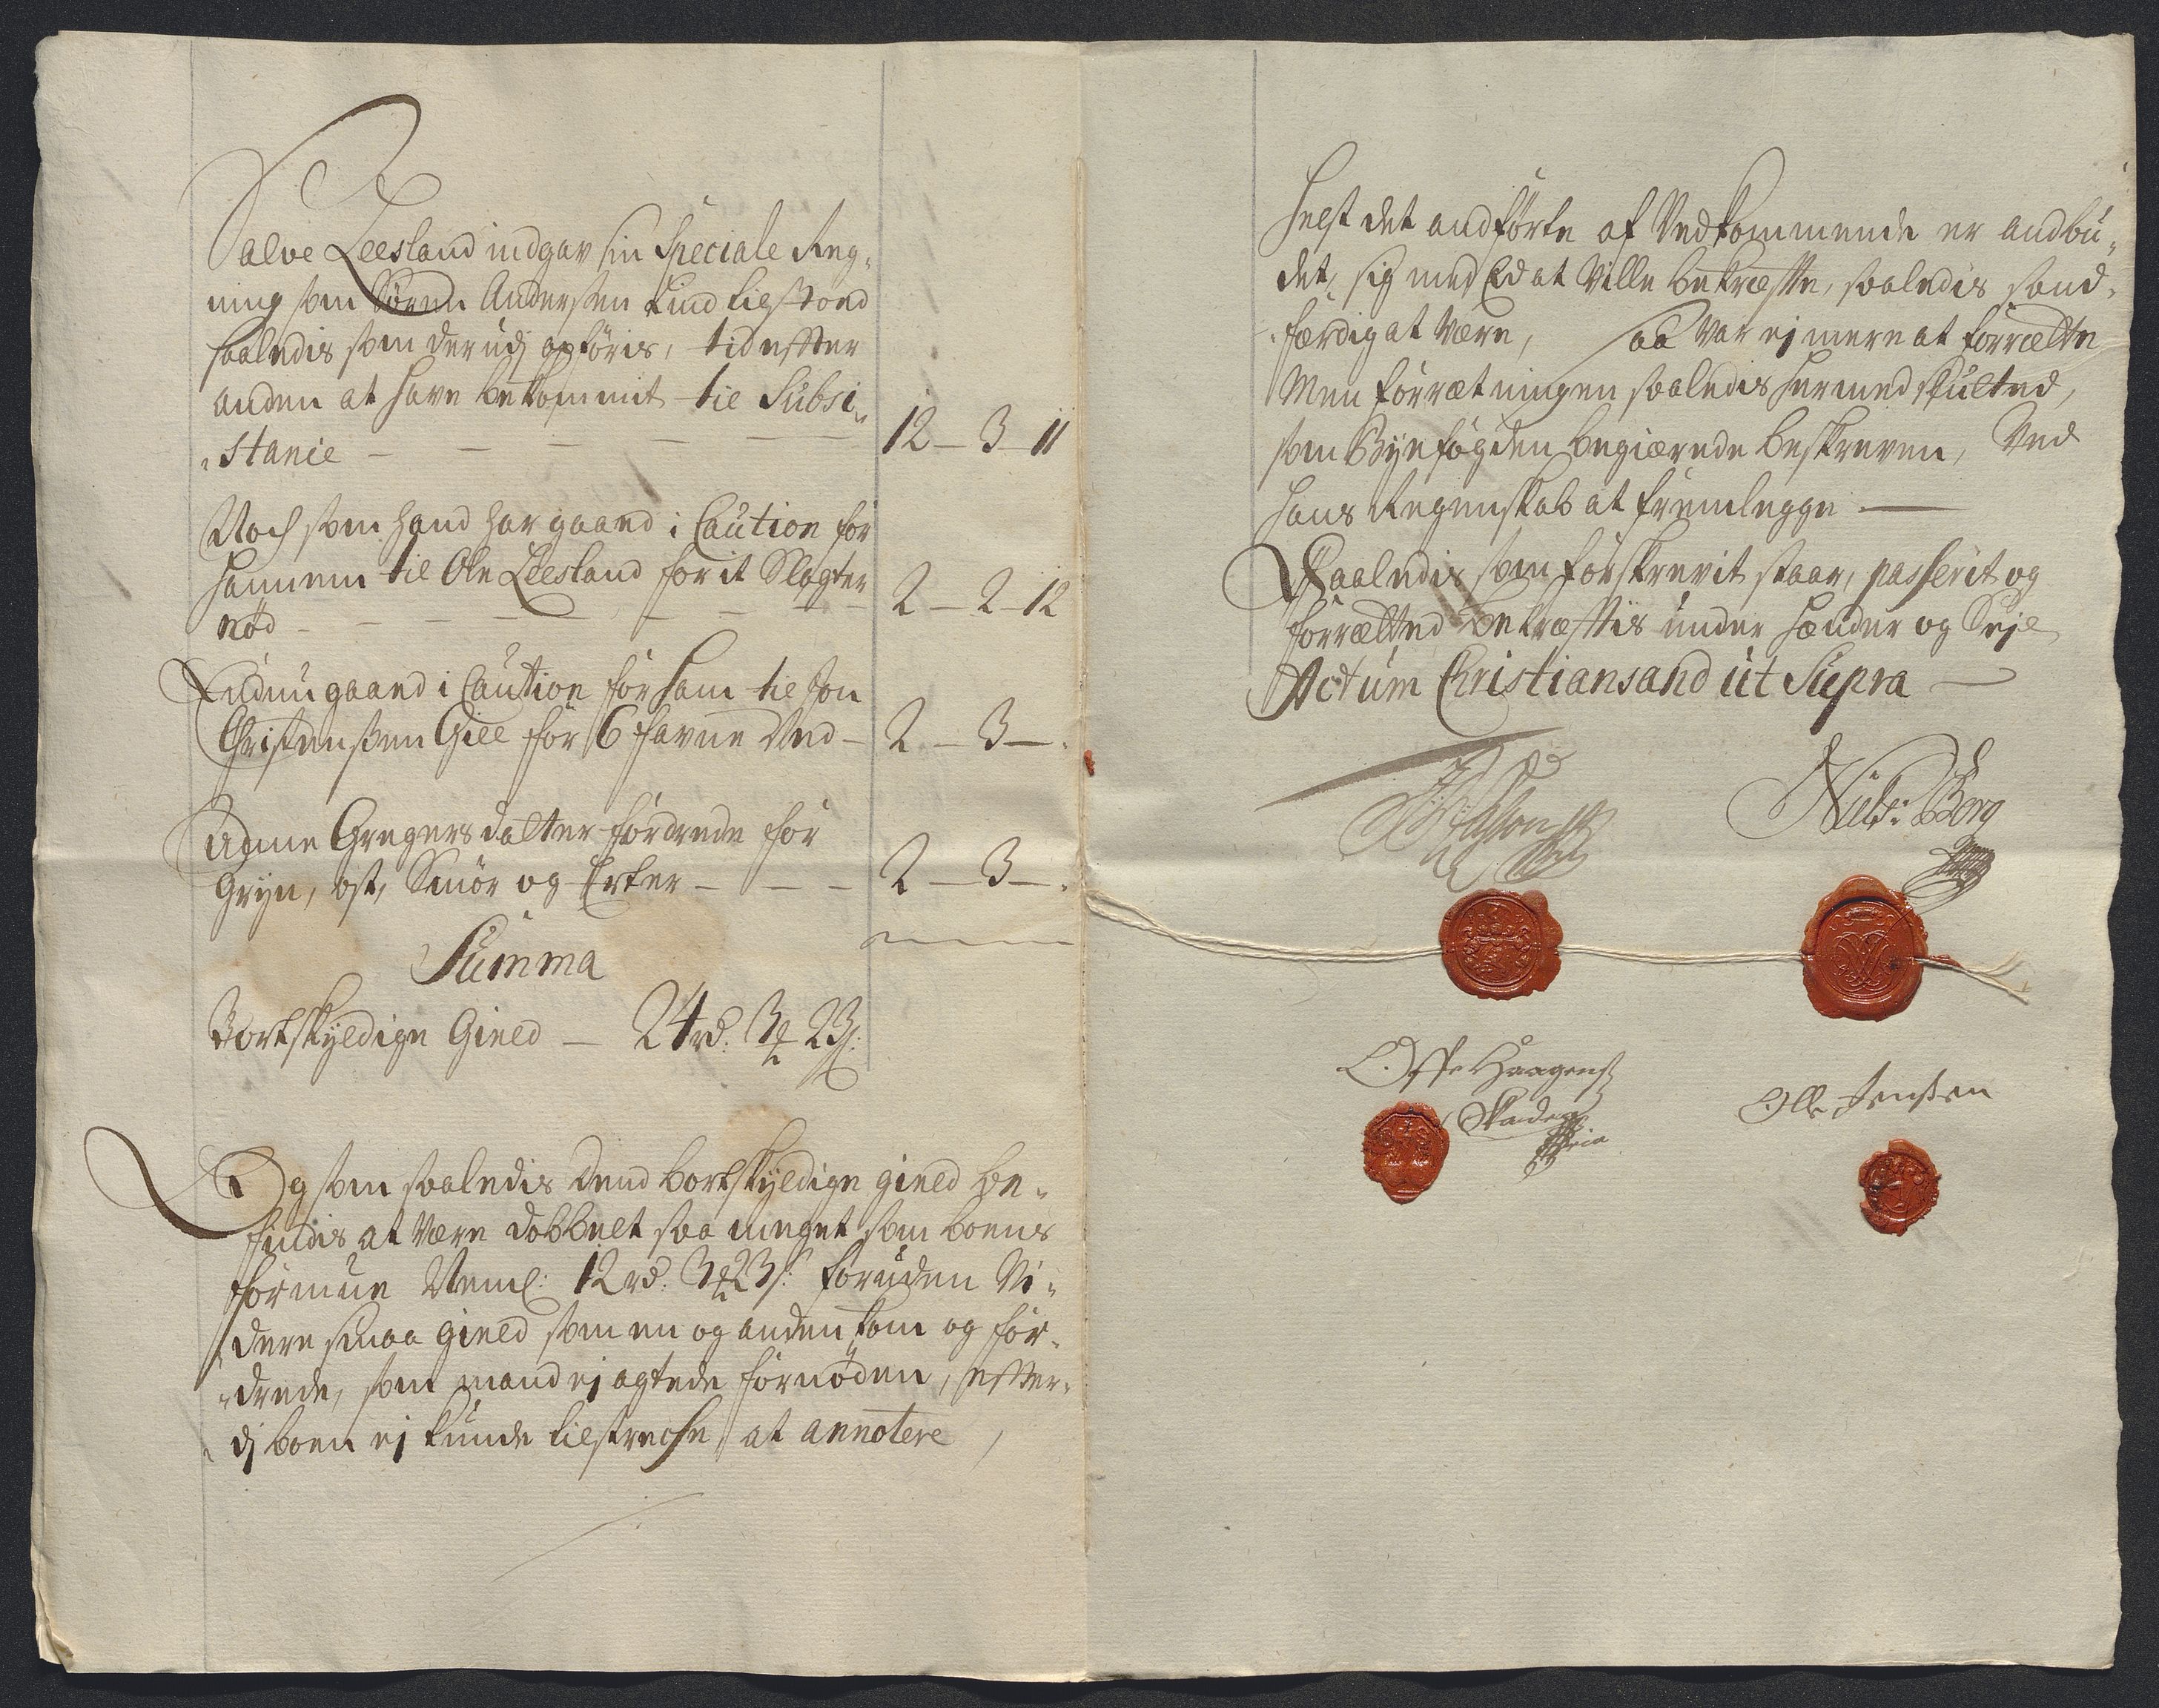 Salve Leesland indgav sin Speciale Reg-
ning som Søren Andersen Lind tilstoed
saaledis som der udj opføris, tid effter
anden at have bekommit til Subsi-
stance — 12 – 3 – 11
Noch som hand har gaaed i Caution for
hannem til Ole Leesland for it Slagter
nød — 2 – 2 – 12
Endnu gaaed i Caution for ham til Jon
Christenssen Giee for 6 favne Ved – 2 – 3 –
Anne Gregers datter fordrede for
Gryn, ost, Smør og Erter — 2 – 3 –
Summa
Bortskyldige Gield — 24 rd: 3 23 s:
Og som saaledis dend bortskyldige gield be-
findis at være dobbelt saa meget som boens
formue Neml: 12 rd: 3 23 s: foruden Vi-
dere smaa gield som en og anden kom og for-
drede, som mand ej agtede fornøden, effter-
dj boen ej kunde tilstreche at annotere,
helst det andførte af Vedkommende er andbu-
det, sig med Ed at Ville bekræffte, saaledis sand-
færdig at være, saa var ej mere at forrætte
Men forrætningen saaledis hermed slutted,
som Byefogden begiærede beskreven, Ved
hans Regenskab at fremlegge —
Saaledis som forskrevit staar, passerit og
forrætted bekræfftis under hænder og Seigl
Actum Christiansand ut Supra —
Niels: Berg
Offe Haagens
Ole Jenssen